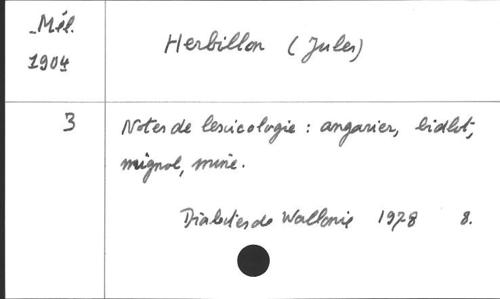 Mél.
1904
Herbillon (Jules)
3
Notes de lexicologie : angarier, bidlot,
mignol, mine.
Dialectes de Wallonie 1978 8.